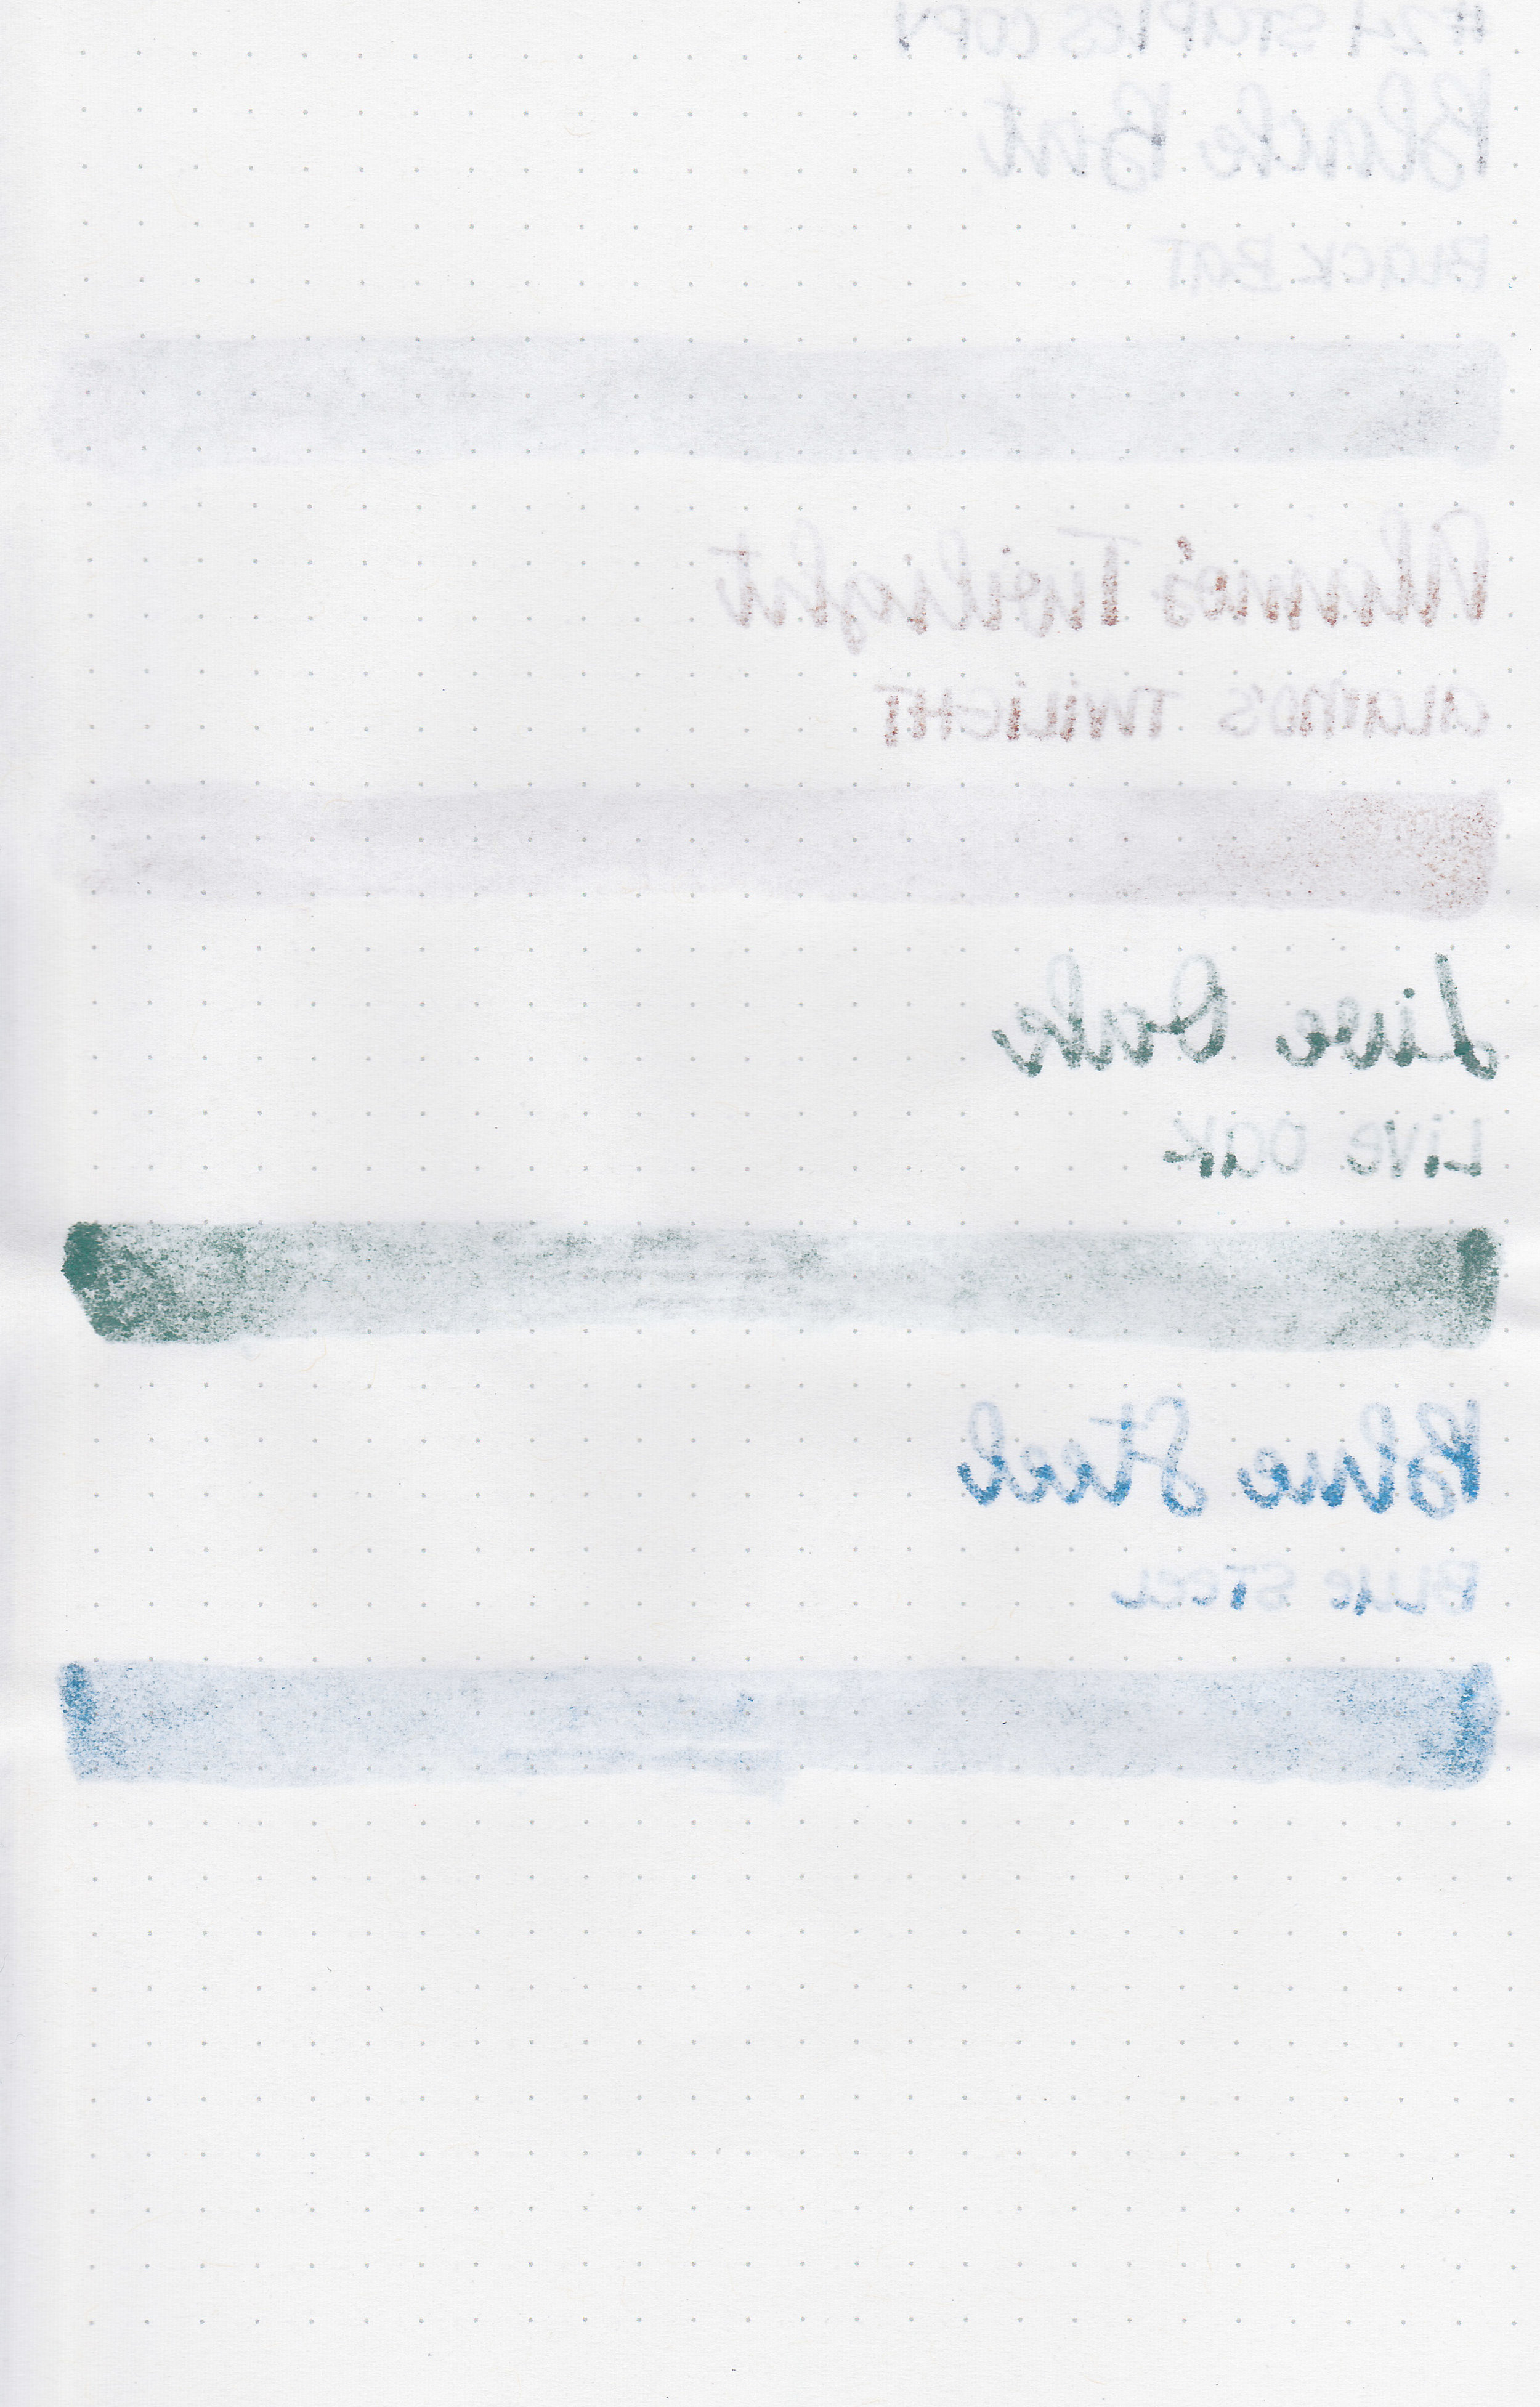 #24 STAPLES COPY
Black Bat
BLACK BAT
Alamo's Twilight
ALAMO'S TWILIGHT
Live Oak
LIVE OAK
Blue Steel
BLUE STEEL